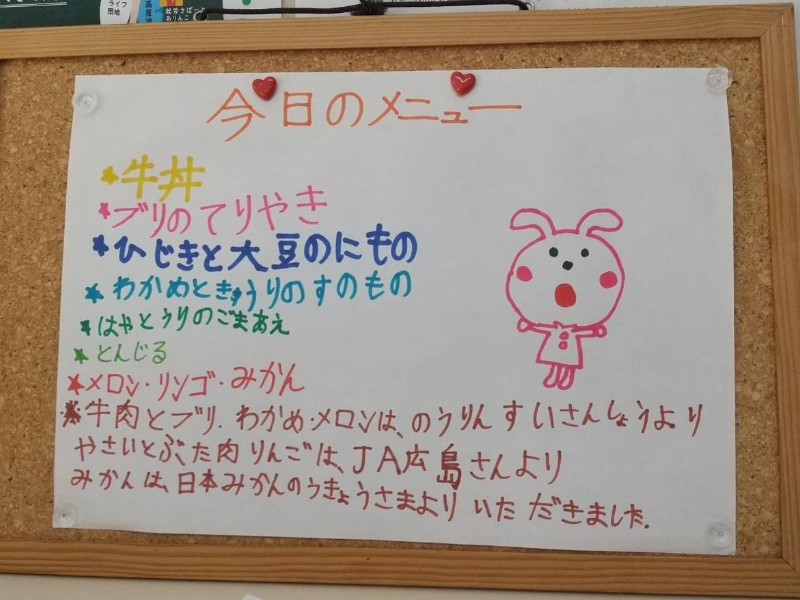 ライフ
団地
今日のメニュー
★牛丼
★ブリのてりやき
★ひじきと大豆のにもの
★わかめときゅうりのすのもの
★はやとうりのごまあえ
★とんじる
★メロン・リンゴ・みかん
※牛肉とブリ.わかめ・メロンは、のうりんすいさんしょうより
やさいとぶた肉りんごは、JA広島さんより
みかんは、日本みかんのうきょうさまよりいただきました.